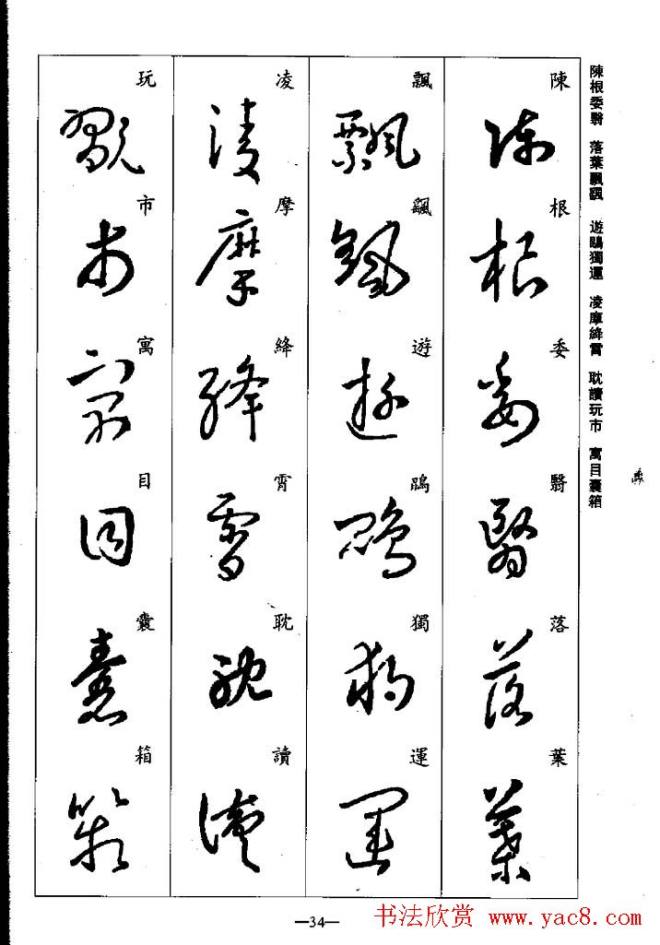 陳根委翳 落葉飄颻 遊鵾獨運 凌摩絳霄 耽讀玩市 寓目囊箱
陳根委翳落葉
飄颻遊鵾獨運
凌摩絳霄耽讀
玩市寓目囊箱
—34—
书法欣赏 www.yac8.com